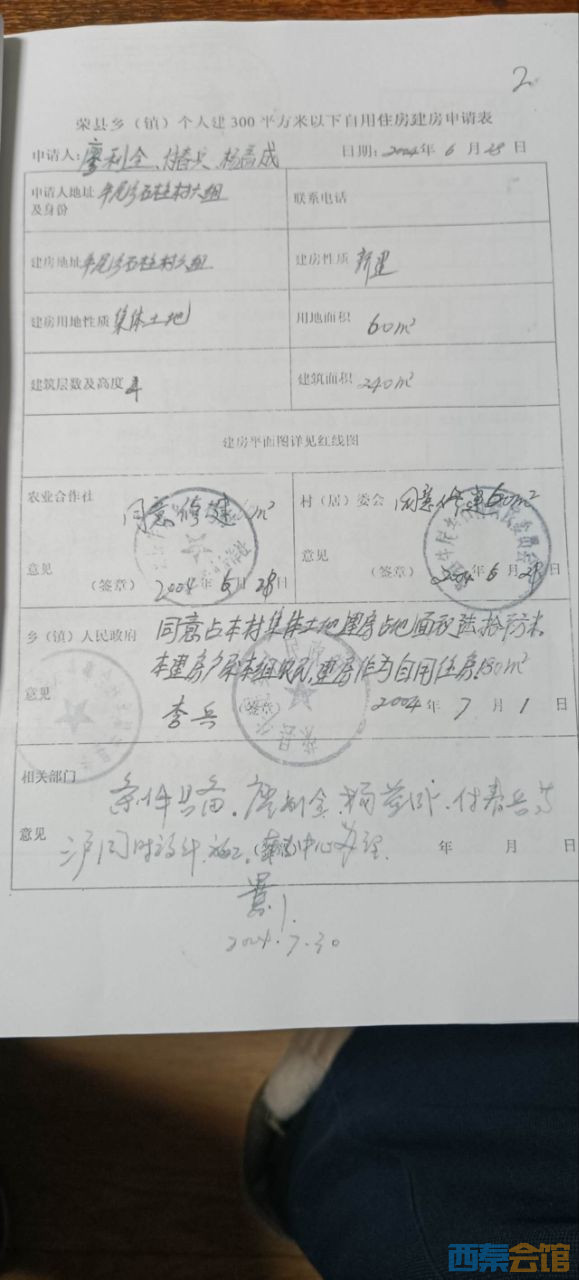 2
荣县乡（镇）个人建300平方米以下自用住房建房申请表
申请人：廖利全、付春兵 杨 成 日期：2004年6月28日
申请人地址及身份 石柱村六组
联系电话
建房地址 石柱村六组
建房性质 新建
建房用地性质 集体土地
用地面积 60m²
建筑层数及高度 4
建筑面积 240m²
建房平面图详见红线图
农业合作社 同意修建 m²
意见
（签章） 2004年6月28日
村（居）委会 同意修建60m²
意见
（签章） 2004年6月28日
乡（镇）人民政府 同意占本村集体土地建房占地面积陆拾平方米。
本建房户属本组农民，建房作为自用住房150m²
意见 李兵 （签章） 2004年7月1日
相关部门 条件具备。廖利全、杨 、付春兵等
意见 三户同时设计、施工。 中心办理. 年 月 日
2004.7.30
西秦会馆